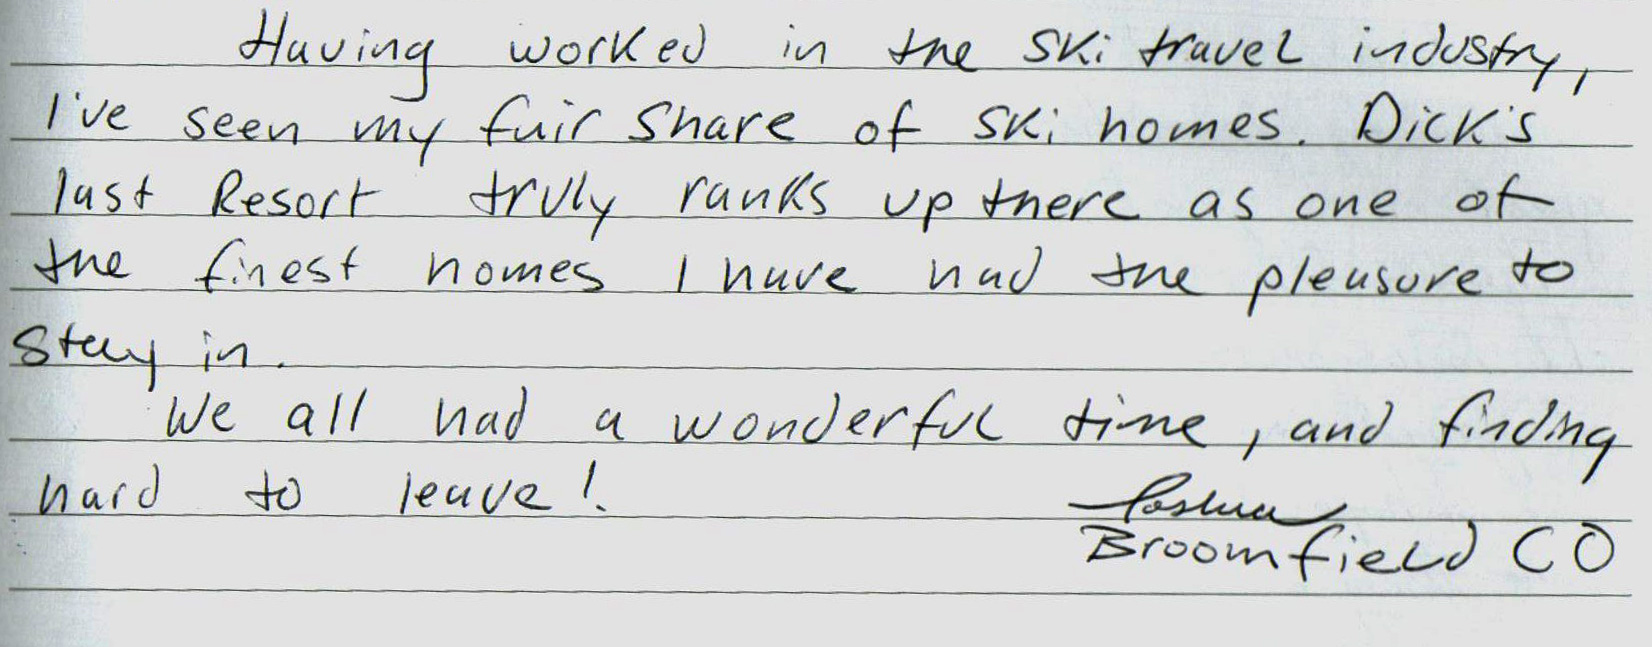 Having worked in the ski travel industry,
I've seen my fair share of ski homes. Dick's
last Resort truly ranks up there as one of
the finest homes I have had the pleasure to
stay in.
We all had a wonderful time, and finding
hard to leave!
Joshua
Broomfield CO